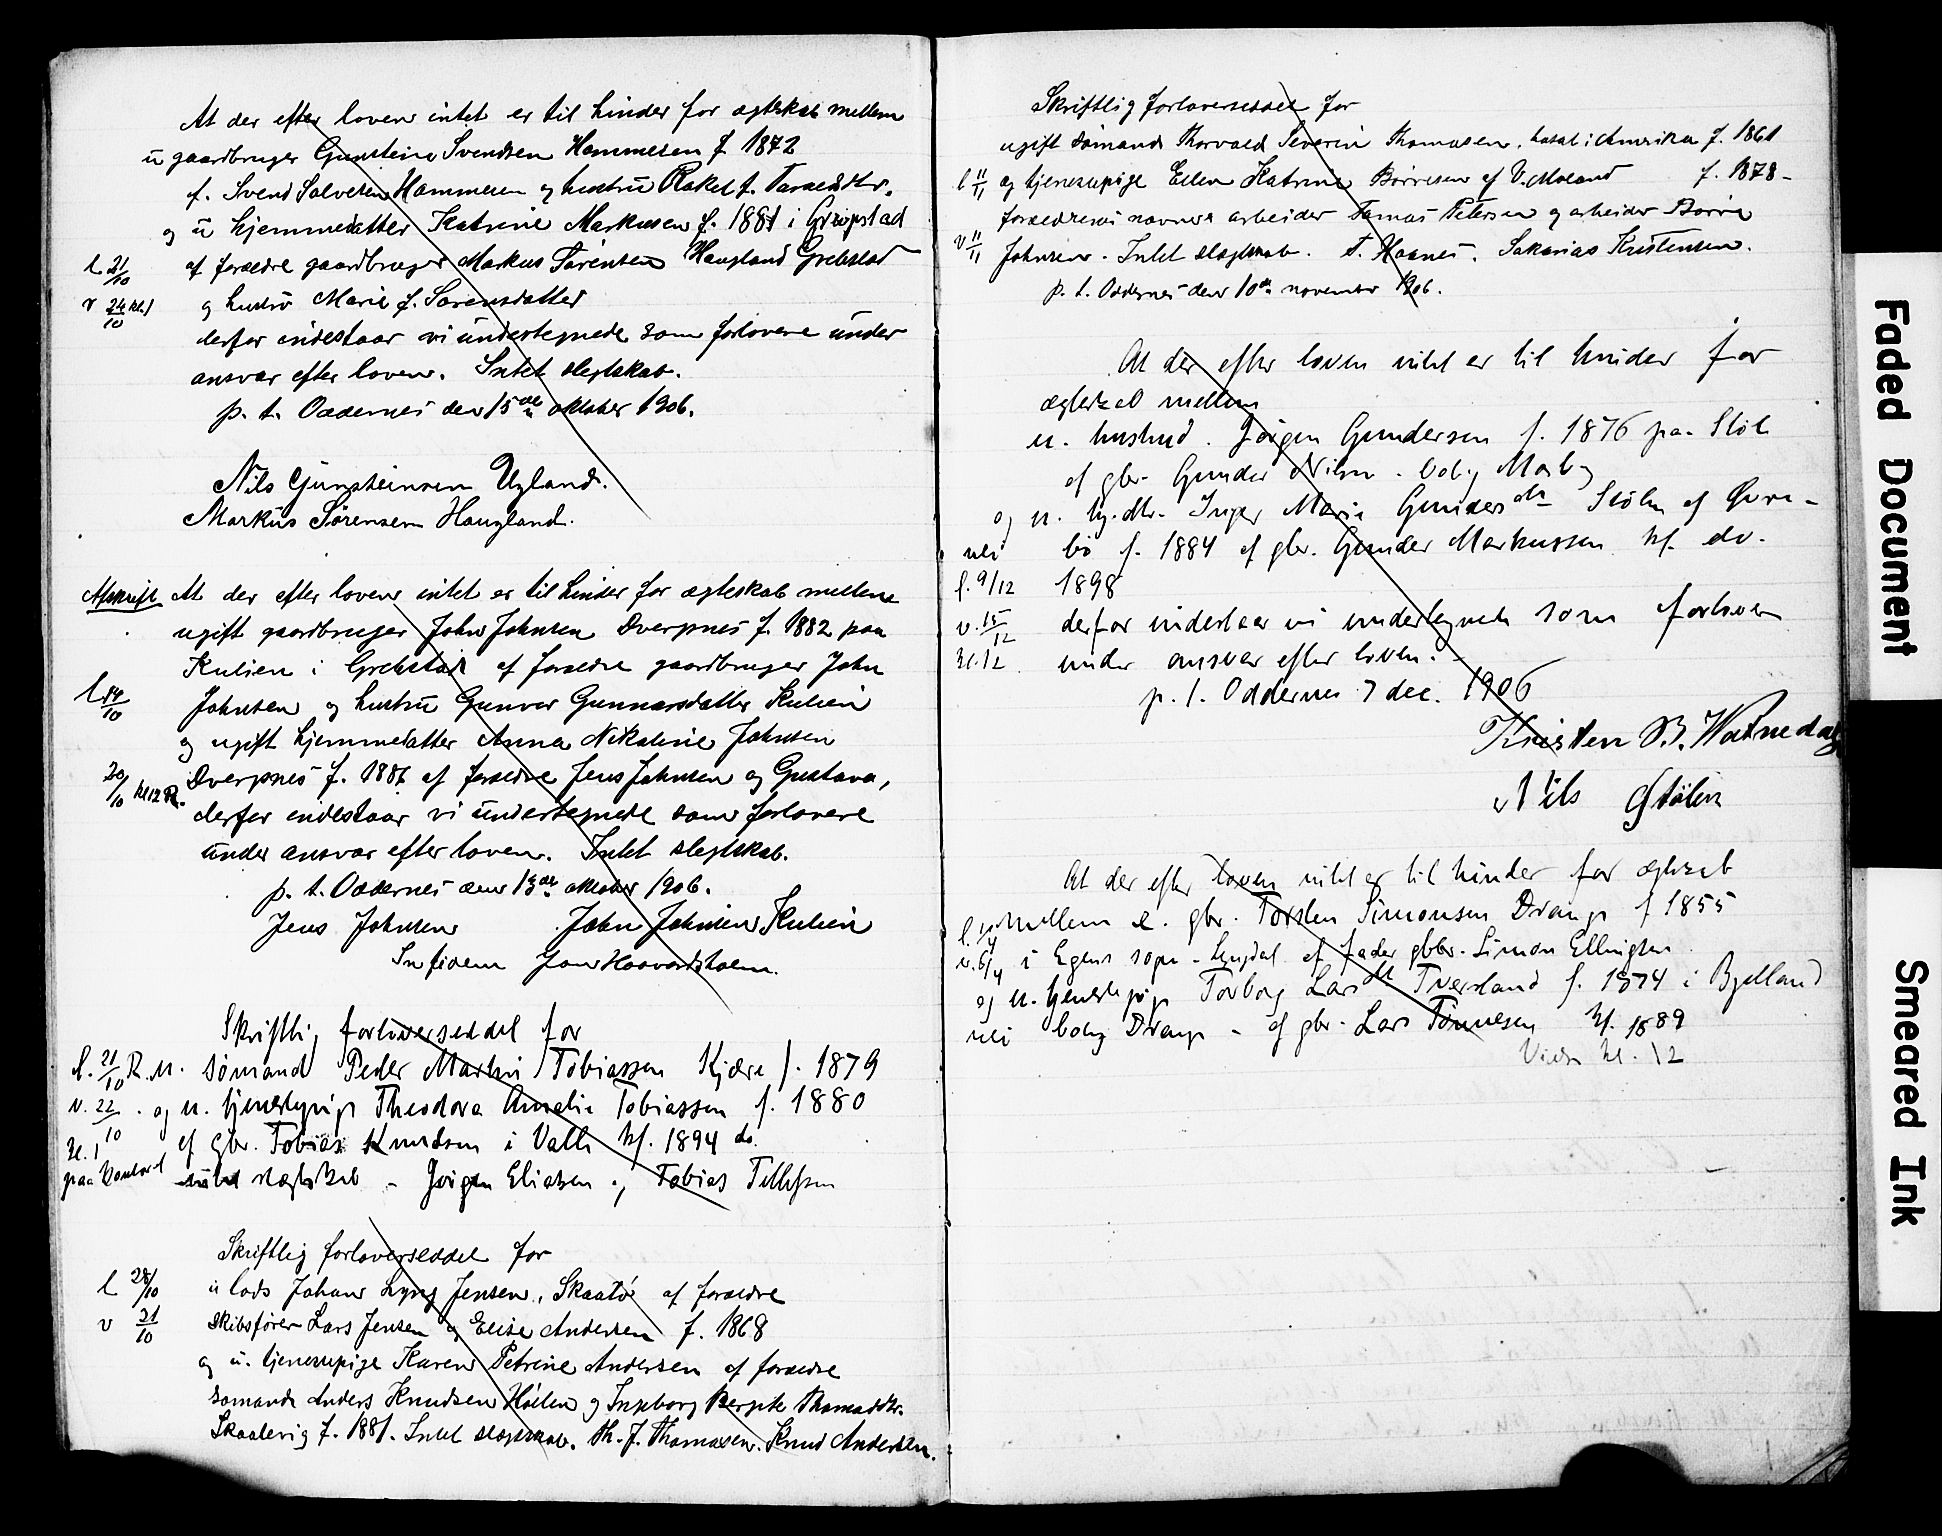 At der efter loven intet er til hinder for ægteskab mellem
u gaardbruger Gunstein Svendsen Hammesen f. 1872
f. Svend Salvesen Hammesen og hustru Rakel f.
og u hjemmedatter Katrine Markusen f. 1881 i Grebstad
l 21/10 af forældre gaardbruger Markus Sørensen Haugland Grebstad
v 24/10 kl. 1 og hustru Marie f. Sørensdatter
derfor indestaar vi undertegnede som forlovere under
ansvar efter loven. Intet slegtskab.
p. t. Oddernes den 15de oktober 1906.
Nils Gunsteinsen Ugland.
Markus Sørensen Haugland.
Afskrift At der efter loven intet er til hinder for ægteskab mellem
ugift gaardbruger John Johnsen Dverpnes f. 1882 paa
Kulien i Grebstad af forældre gaardbruger John
l 14/10 Johnsen og hustru Gunvor Gunnarsdatter Kulien
og ugift hjemmedatter Anna Nikoline Johnsen
20/10 kl 12 R. Dverpnes f. 1886 af forældre Jens Johnsen og Gustava,
derfor indestaar vi undertegnede som forlovere
under ansvar efter loven. Intet slegtskab.
p. t. Oddernes den 13de oktober 1906.
Jens Johnsen John Johnsen Kulien
In fidem Jon Haavardsholm.
Skriftlig forloverseddel for
l. 21/10 R. u. sømand Peder Martin Tobiassen Kjære f. 1879
v. 22/10 og u. tjenestepige Theodora Amalie Tobiassen f. 1880
kl. 1 af gbr. Tobias Knudsen i Valle kf. 1894 do.
paa kontoret intet slegtskab - Jørgen Eliassen og Tobias Tellefsen
Skriftlig forloverseddel for
l 28/10 u lods Johan Lyng Jensen, Skaatø af forældre
v 31/10 skibsfører Lars Jensen og Elise Andersen f. 1868
og u. tjenestepige Karen Petrine Andersen af forældre
sømand Anders Knudsen Høilen og Ingborg Bergite Thomasdtr.
Skaalevig f. 1881. Intet slegtskab. Th. J. Thomasen. Knud Andersen.
Skriftlig forloverseddel for
ugift sømand Thorvald Severin Thomasen, bosat i Amerika f. 1861
l 11/11 og tjenestepige Ellen Katrine Børresen af V. Moland f. 1878 -
forældrenes navner arbeider Tomas Petersen og arbeider Børre
v 11/11 Johnsen. Intet slegtskab. T. Haanes. Sakarias Kristensen.
p. t. Oddernes den 10de november 1906.
At der efter loven intet er til hinder for
ægteskab mellem
u. husmd. Jørgen Gundersen f. 1876 paa Støle
af gbr. Gunder Nilsen. bolig Mosby
og u. hj.dtr. Inger Marie Gundersdtr Stølen af Øvre-
nei bø f. 1884 af gbr. Gunder Markussen kf. do.
l. 9/12 1898
v. 15/12 derfor indestaar vi undertegnede som forlovere
kl. 12 under ansvar efter loven. -
p. t. Oddernes 7 dec. 1906
Kristen B. Watnedag
Nils Stølen
At der efter loven intet er til hinder for ægteskab
mellem e. gbr. Torsten Simonsen Drange f 1855
v. 6/4 i Egens sogn - Lyngdal af fader gbr. Simon Ellingsen
og u. tjenestepige Torborg Larsdtr Tversland f. 1874 i Bjelland
nei bolig Drange - af gbr. Lars Tønnesen kf. 1889
Vies kl. 12
Faded Document
Smeared Ink